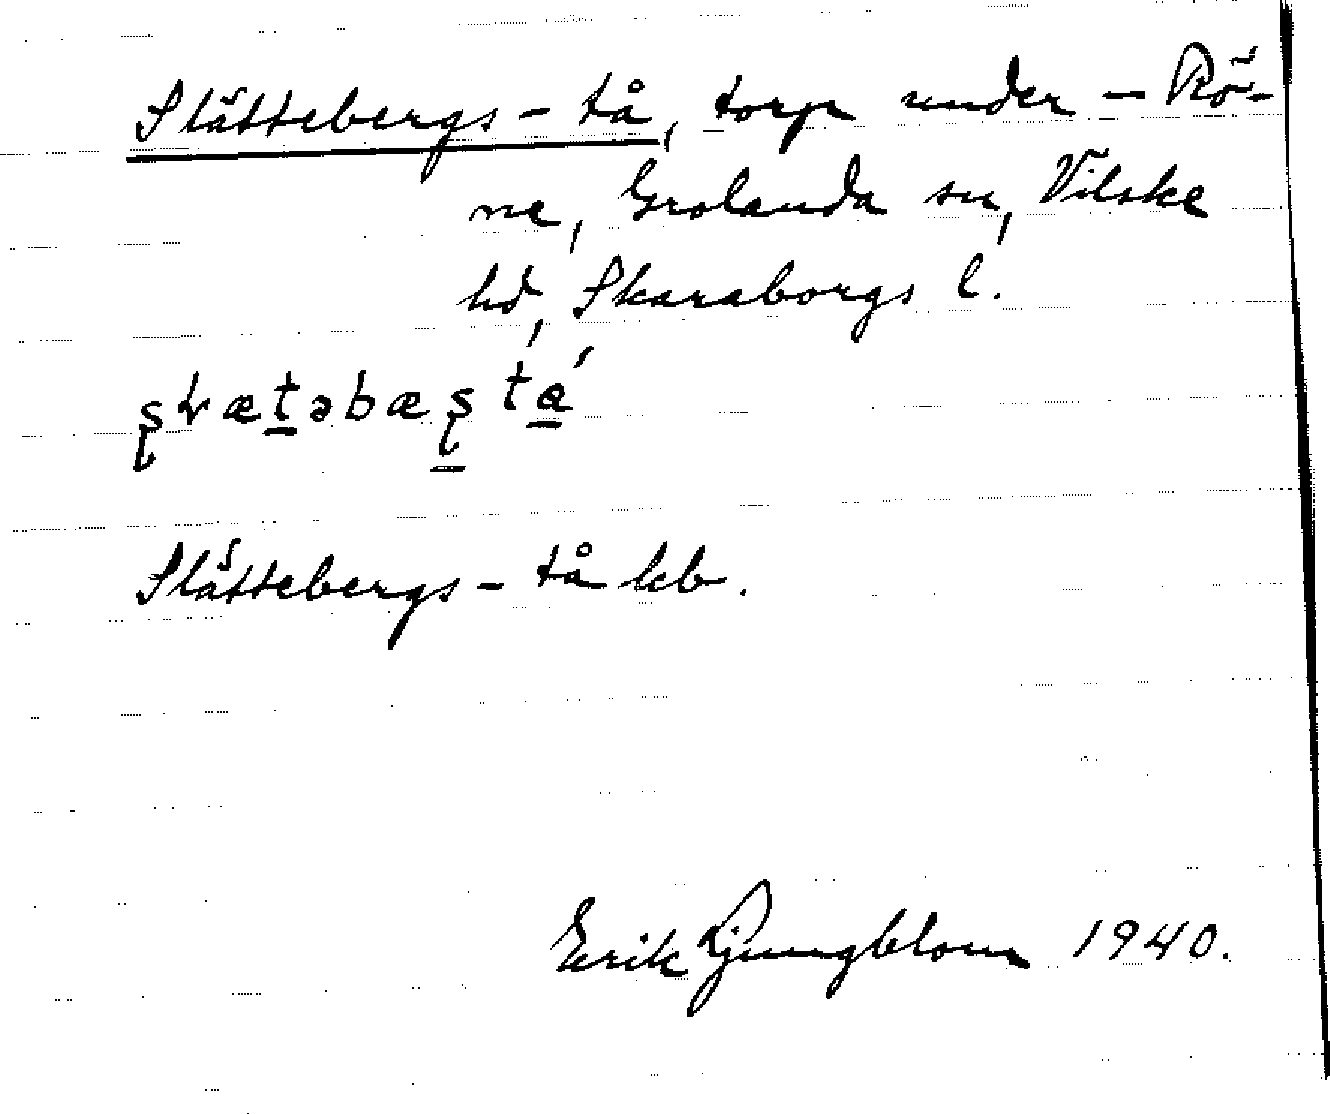 Slättebergs-tå, torp under - Rö-
ne, Grolanda sn, Vilske
hd, Skaraborgs l.
Slättebergs-tå kb.
Erik Ljungblom 1940.